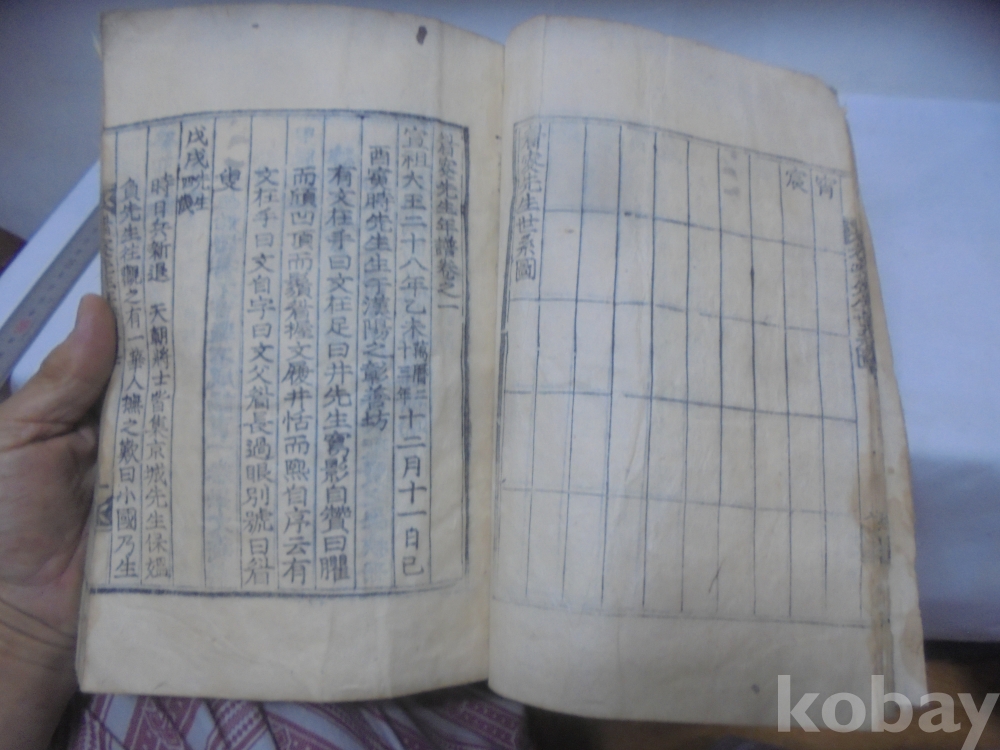 宵
宸
眉叟先生世系圖
眉叟先生年譜卷之一
宣祖大王二十八年乙未萬曆二十三年十二月十一日己
酉寅時先生生于漢陽之彰善坊
有文在手曰文在足曰井先生寫影自贊曰臞
而頎凹頂而鬚眉握文履井恬而熙自序云有
文在手曰文自字曰文父眉長過眼別號曰眉
叟
戊戌先生四歲
時日兵新退 天朝將士皆集京城先生保媼
負先生往觀之有一華人撫之歎曰小國乃生
kobay